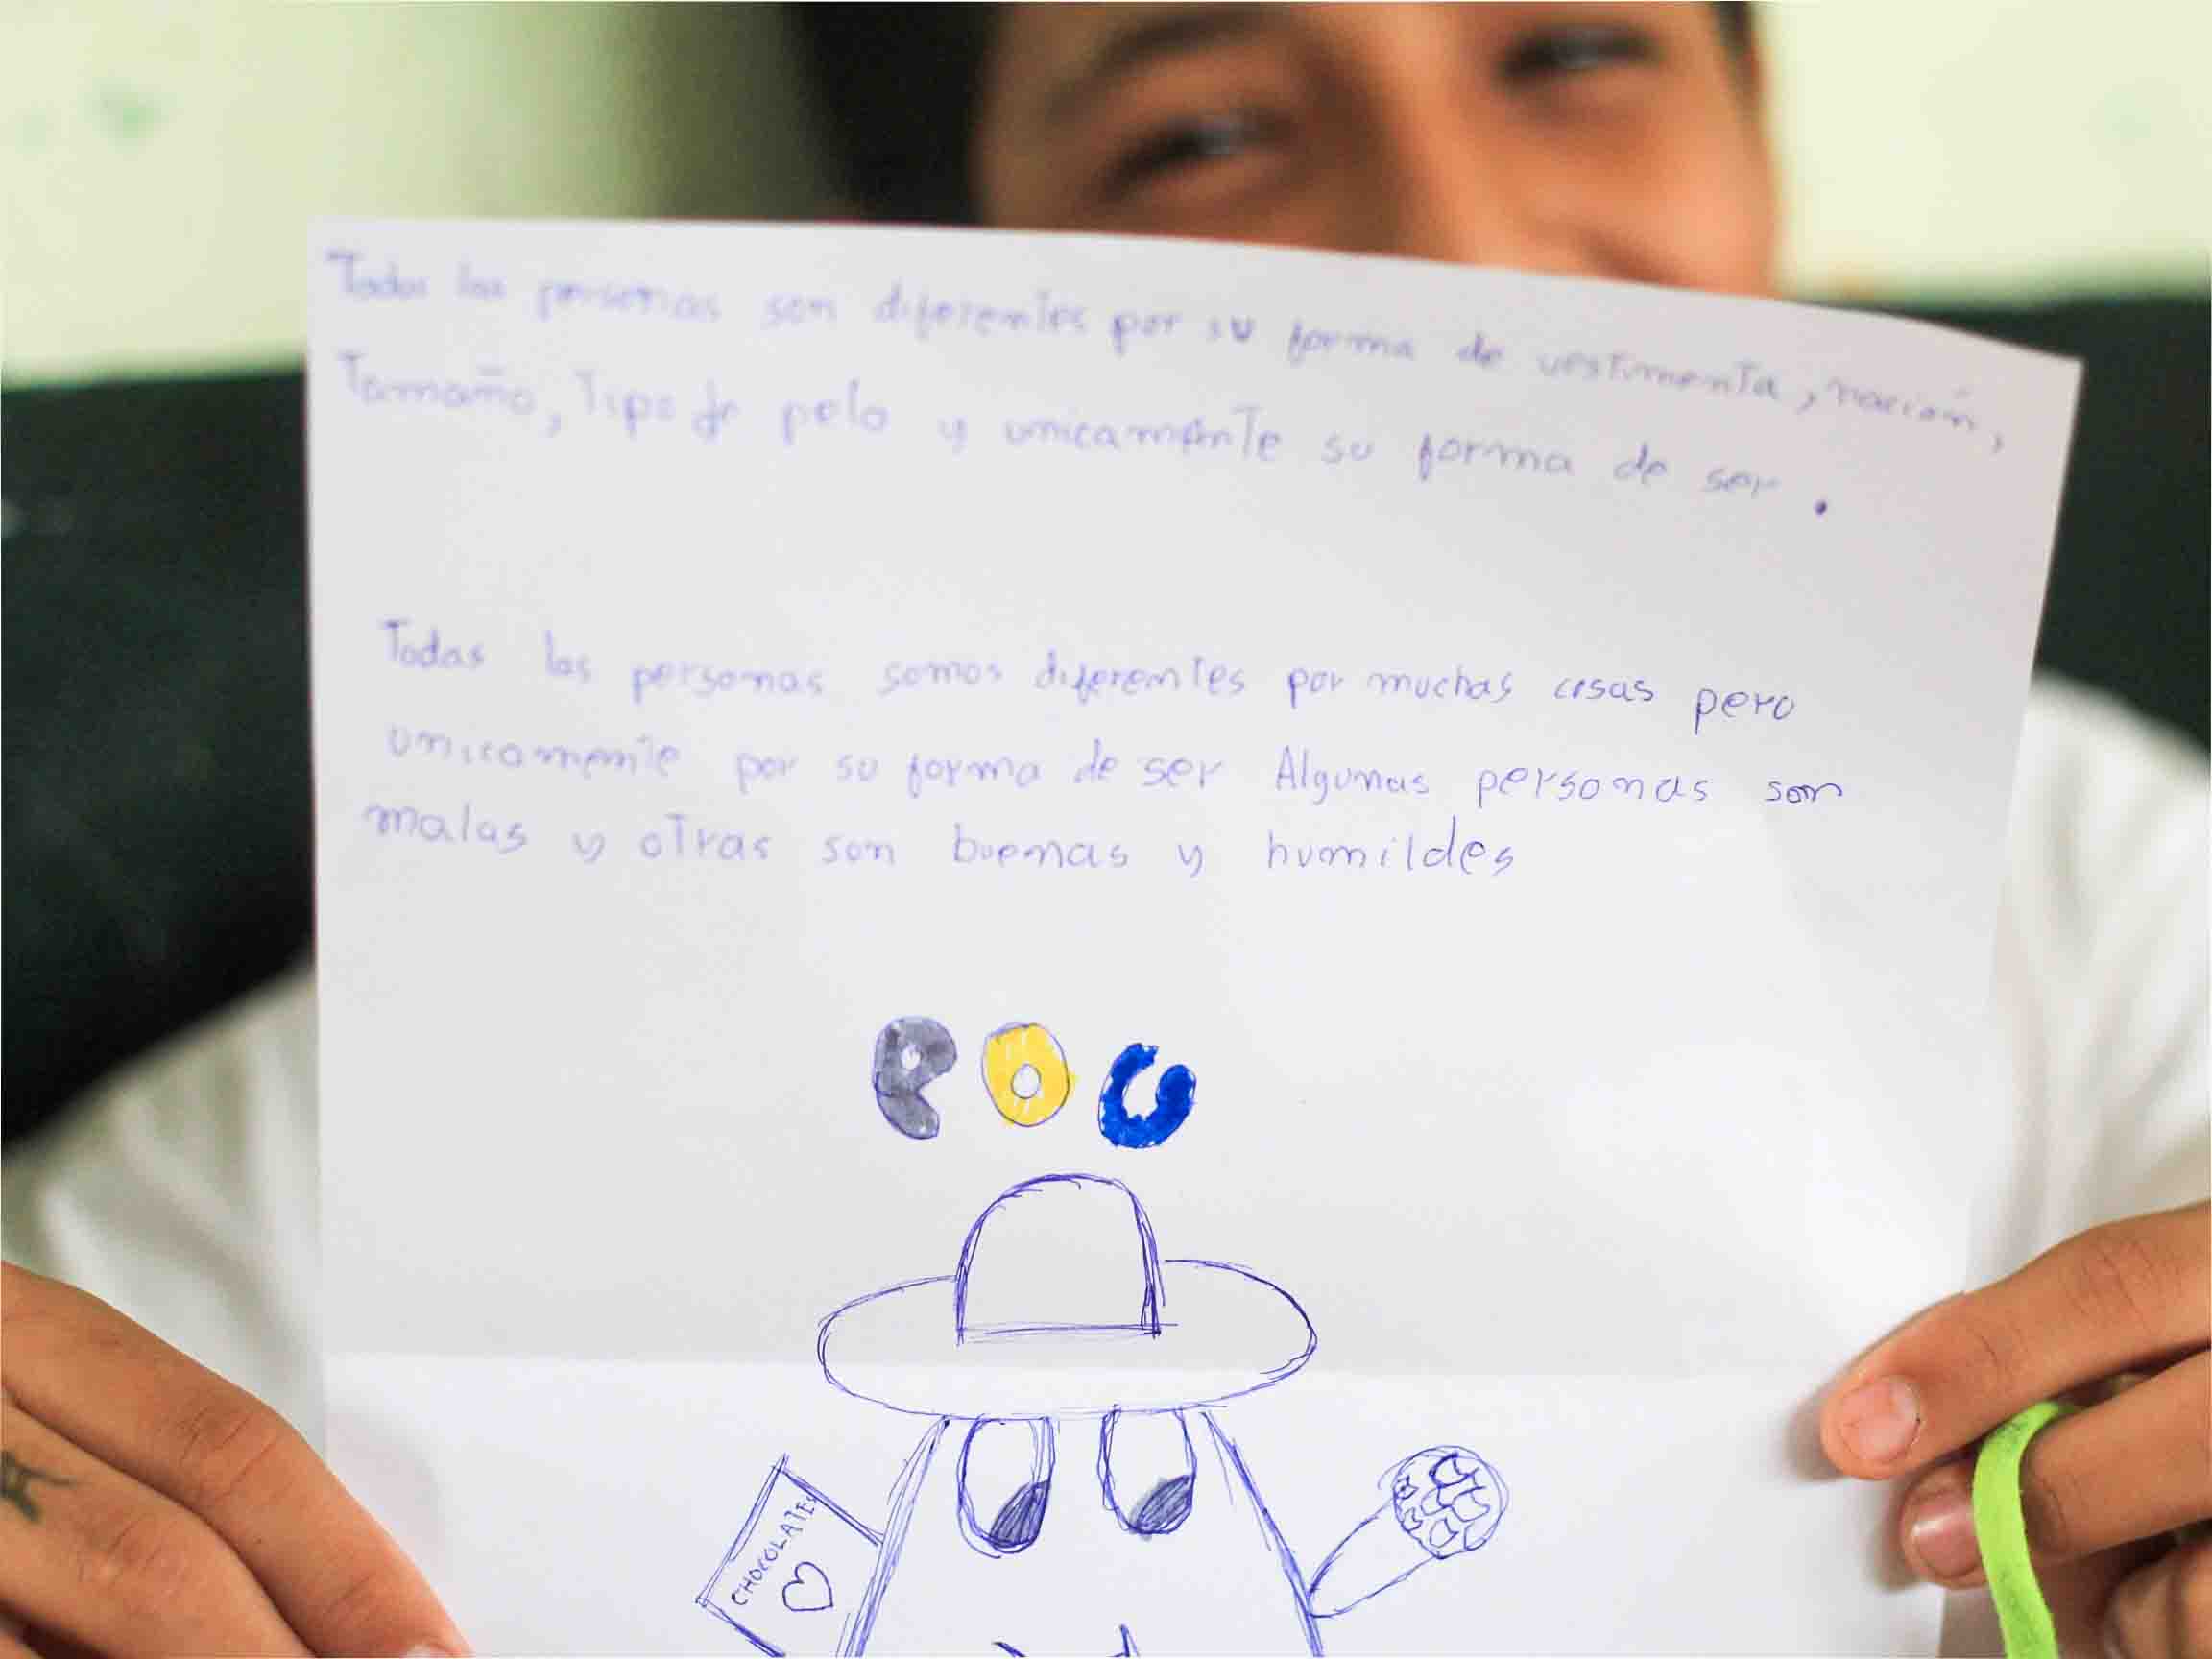 Todas las personas son diferentes por su forma de vestimenta, nación,
Tamaño, Tipo de pelo y unicamente su forma de ser.
Todas las personas somos diferentes por muchas cosas pero
unicamente por su forma de ser Algunas personas son
malas y otras son buenas y humildes
POC
CHOCOLATES